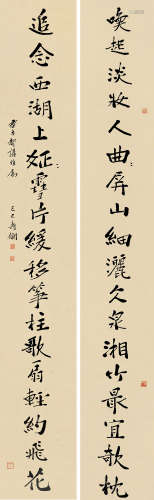 喚起淡妝人曲〻屏山細灑冰泉湘竹最宜欹枕
追念西湖上雪片緩移箏柱歌扇輕約飛花